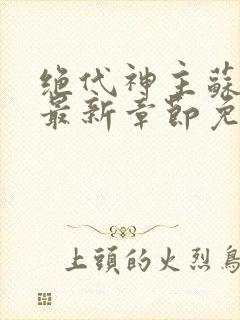 绝代神主蘇
最新章節免
上頭的火烈鳥